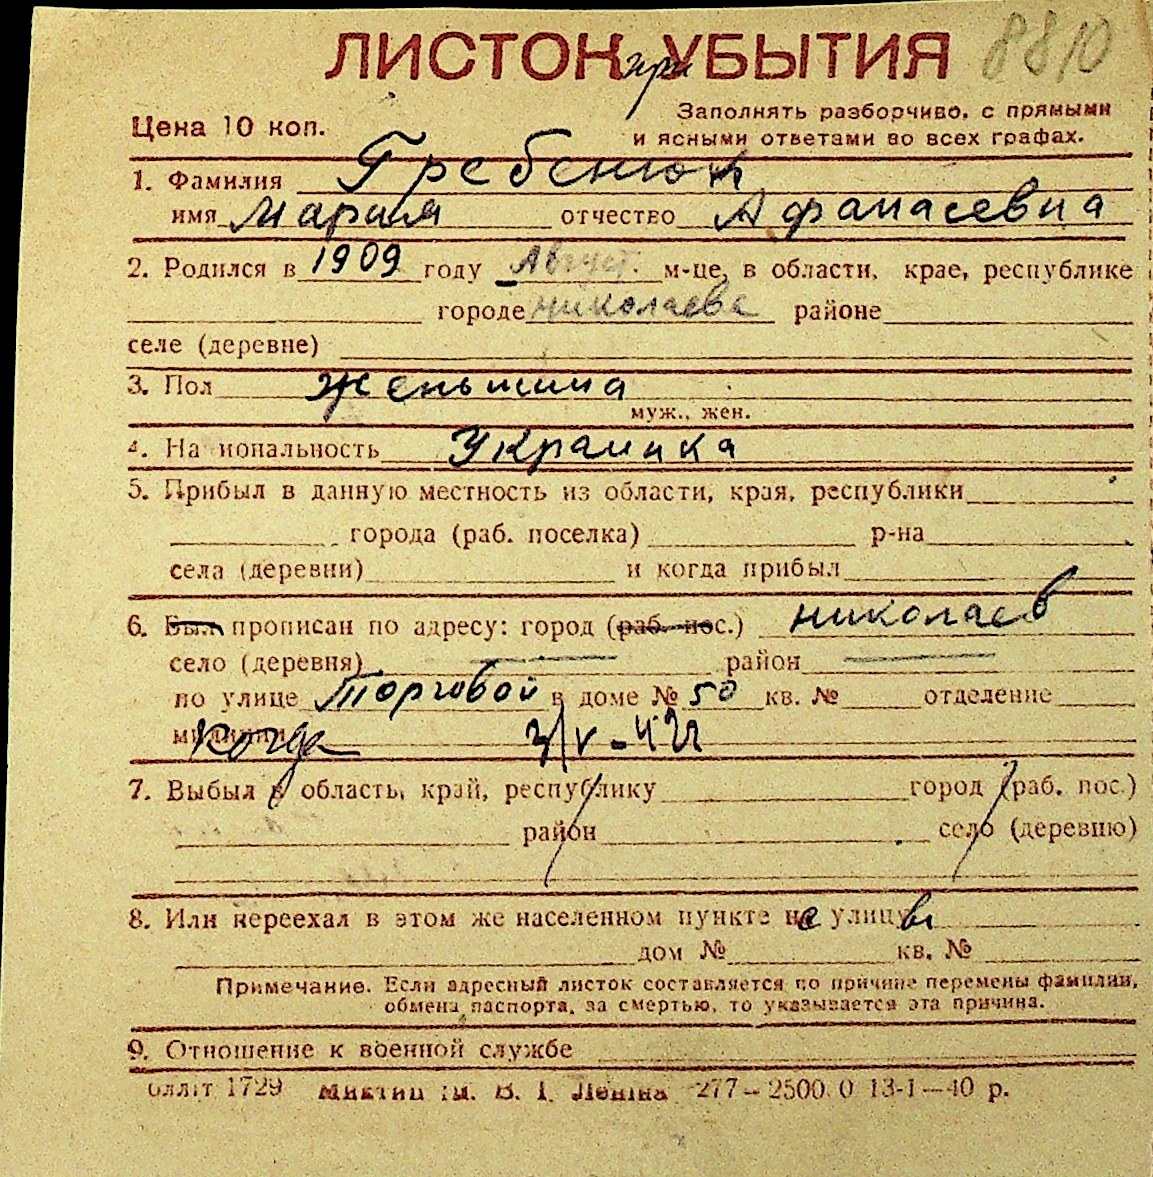 8810
ЛИСТОК при УБЫТИЯ
Цена 10 коп.
Заполнять разборчиво, с прямыми
и ясными ответами во всех графах.
1. Фамилия Гребенюк
имя Мария отчество Афанасевна
2. Родился в 1909 году Август. м-це, в области, крае, республике
городе николаеве районе
селе (деревне)
3. Пол женьшина
муж., жен.
4. На иональность Украинка
5. Прибыл в данную местность из области, края, республики
города (раб. поселка) р-на
села (деревни) и когда прибыл
6. Был прописан по адресу: город (раб. пос.) николаев
село (деревня) район
по улице Торговой в доме № 50 кв. № отделение
милиции Когда
7. Выбыл в область, край, республику город (раб. пос.)
район село (деревню)
8. Или переехал в этом же населенном пункте не улицы
дом № кв. №
Примечание. Если адресный листок составляется по причине перемены фамилии,
обмена паспорта, за смертью, то указывается эта причина.
9. Отношение к военной службе
1729 Леніна 277–2500.0 13-I–40 р.